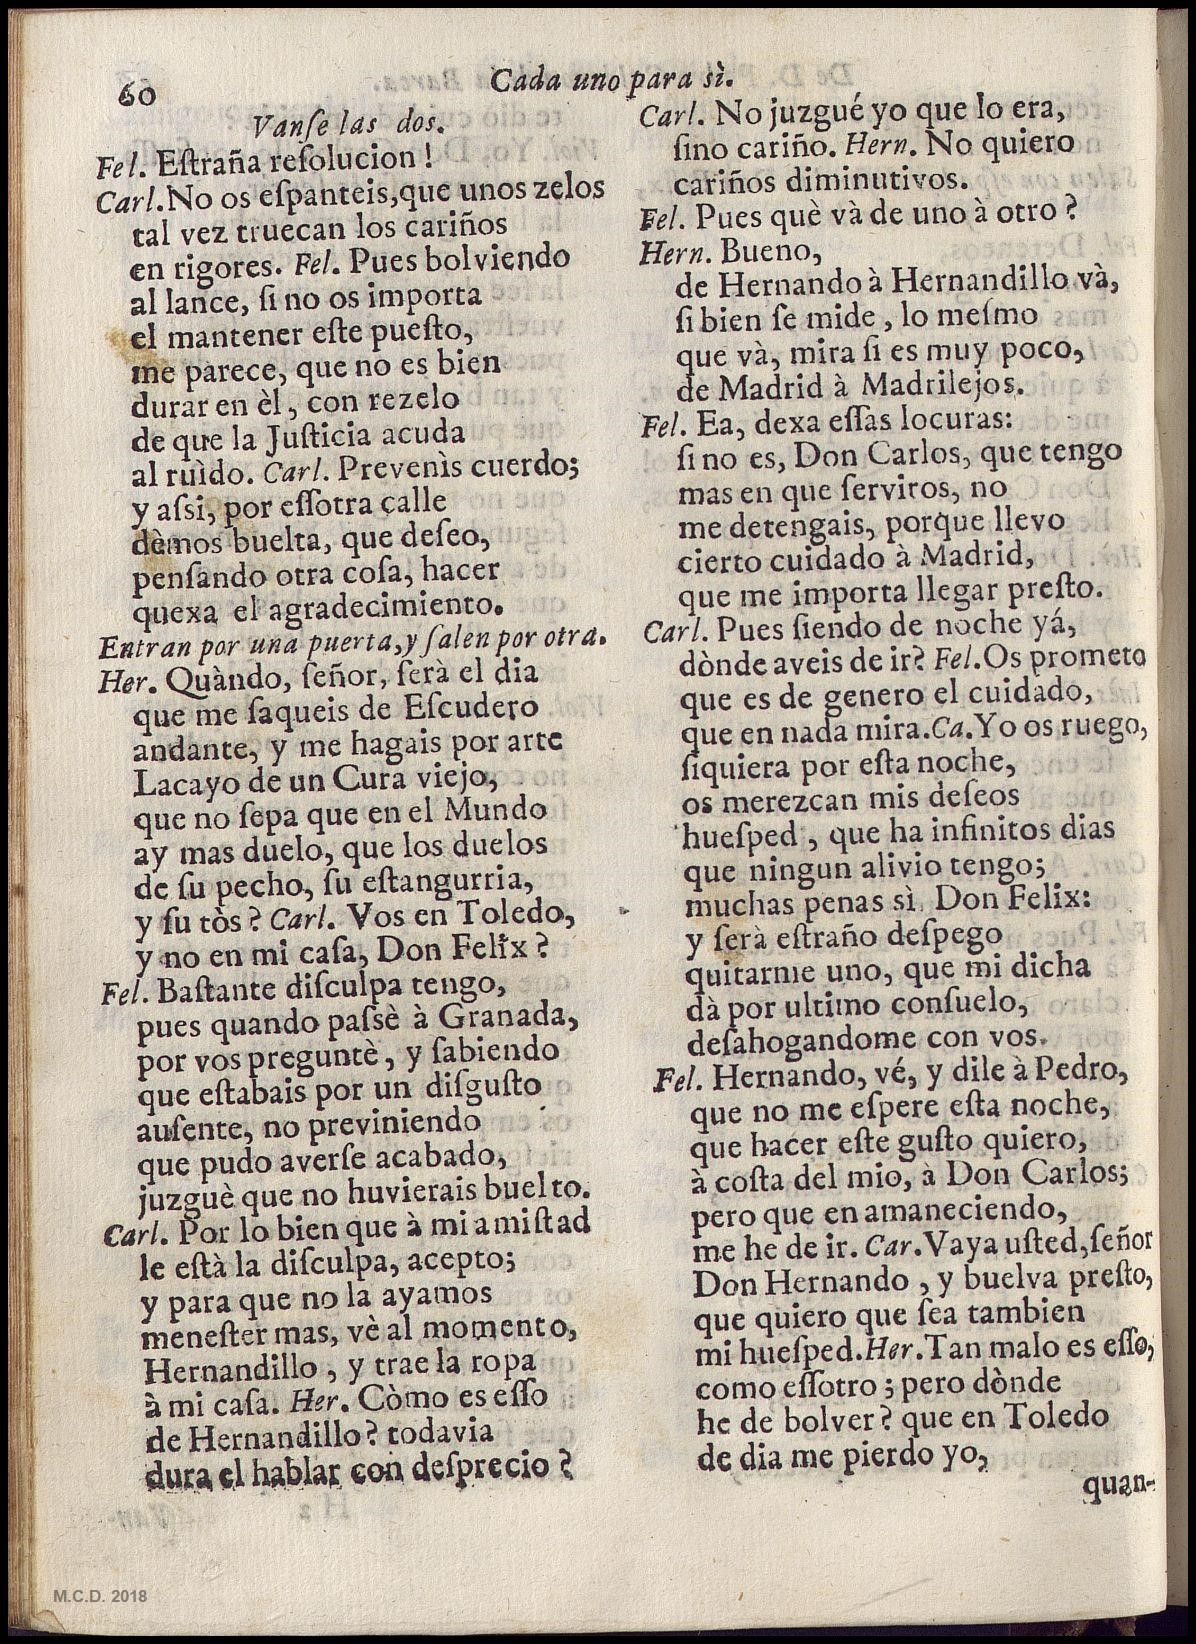 60
Cada uno para sì.
Vanſe las dos.
Fel. Eſtraña reſolucion!
Carl. No os eſpanteis, que unos zelos
tal vez truecan los cariños
en rigores. Fel. Pues bolviendo
al lance, ſi no os importa
el mantener eſte pueſto,
me parece, que no es bien
durar en èl, con rezelo
de que la Juſticia acuda
al ruìdo. Carl. Prevenìs cuerdo;
y aſsi, por eſſotra calle
dèmos buelta, que deſeo,
penſando otra coſa, hacer
quexa el agradecimiento.
Entran por una puerta, y ſalen por otra.
Her. Quàndo, ſeñor, ſerà el dia
que me ſaqueis de Eſcudero
andante, y me hagais por arte
Lacayo de un Cura viejo,
que no ſepa que en el Mundo
ay mas duelo, que los duelos
de ſu pecho, ſu eſtangurria,
y ſu tòs? Carl. Vos en Toledo,
y no en mi caſa, Don Felix?
Fel. Baſtante diſculpa tengo,
pues quando paſsè à Granada,
por vos preguntè, y ſabiendo
que eſtabais por un diſguſto
auſente, no previniendo
que pudo averſe acabado,
juzguè que no huvierais buelto.
Carl. Por lo bien que à mi amiſtad
le eſtà la diſculpa, acepto;
y para que no la ayamos
meneſter mas, vè al momento,
Hernandillo, y trae la ropa
à mi caſa. Her. Còmo es eſſo
de Hernandillo? todavia
dura el hablar con deſprecio?
Carl. No juzgué yo que lo era,
ſino cariño. Hern. No quiero
cariños diminutivos.
Fel. Pues què và de uno à otro?
Hern. Bueno,
de Hernando à Hernandillo và,
ſi bien ſe mide, lo meſmo
que và, mira ſi es muy poco,
de Madrid à Madrilejos.
Fel. Ea, dexa eſſas locuras:
ſi no es, Don Carlos, que tengo
mas en que ſerviros, no
me detengais, porque llevo
cierto cuidado à Madrid,
que me importa llegar preſto.
Carl. Pues ſiendo de noche yá,
dònde aveis de ir? Fel. Os prometo
que es de genero el cuidado,
que en nada mira. Ca. Yo os ruego,
ſiquiera por eſta noche,
os merezcan mis deſeos
hueſped, que ha infinitos dias
que ningun alivio tengo;
muchas penas sì, Don Felix:
y ſerà eſtraño deſpego
quitarme uno, que mi dicha
dà por ultimo conſuelo,
deſahogandome con vos.
Fel. Hernando, vé, y dile à Pedro,
que no me eſpere eſta noche,
que hacer eſte guſto quiero,
à coſta del mio, à Don Carlos;
pero que en amaneciendo,
me he de ir. Car. Vaya uſted, ſeñor
Don Hernando, y buelva preſto,
que quiero que ſea tambien
mi hueſped. Her. Tan malo es eſſo,
como eſſotro; pero dònde
he de bolver? que en Toledo
de dia me pierdo yo,
quan-
M.C.D. 2018